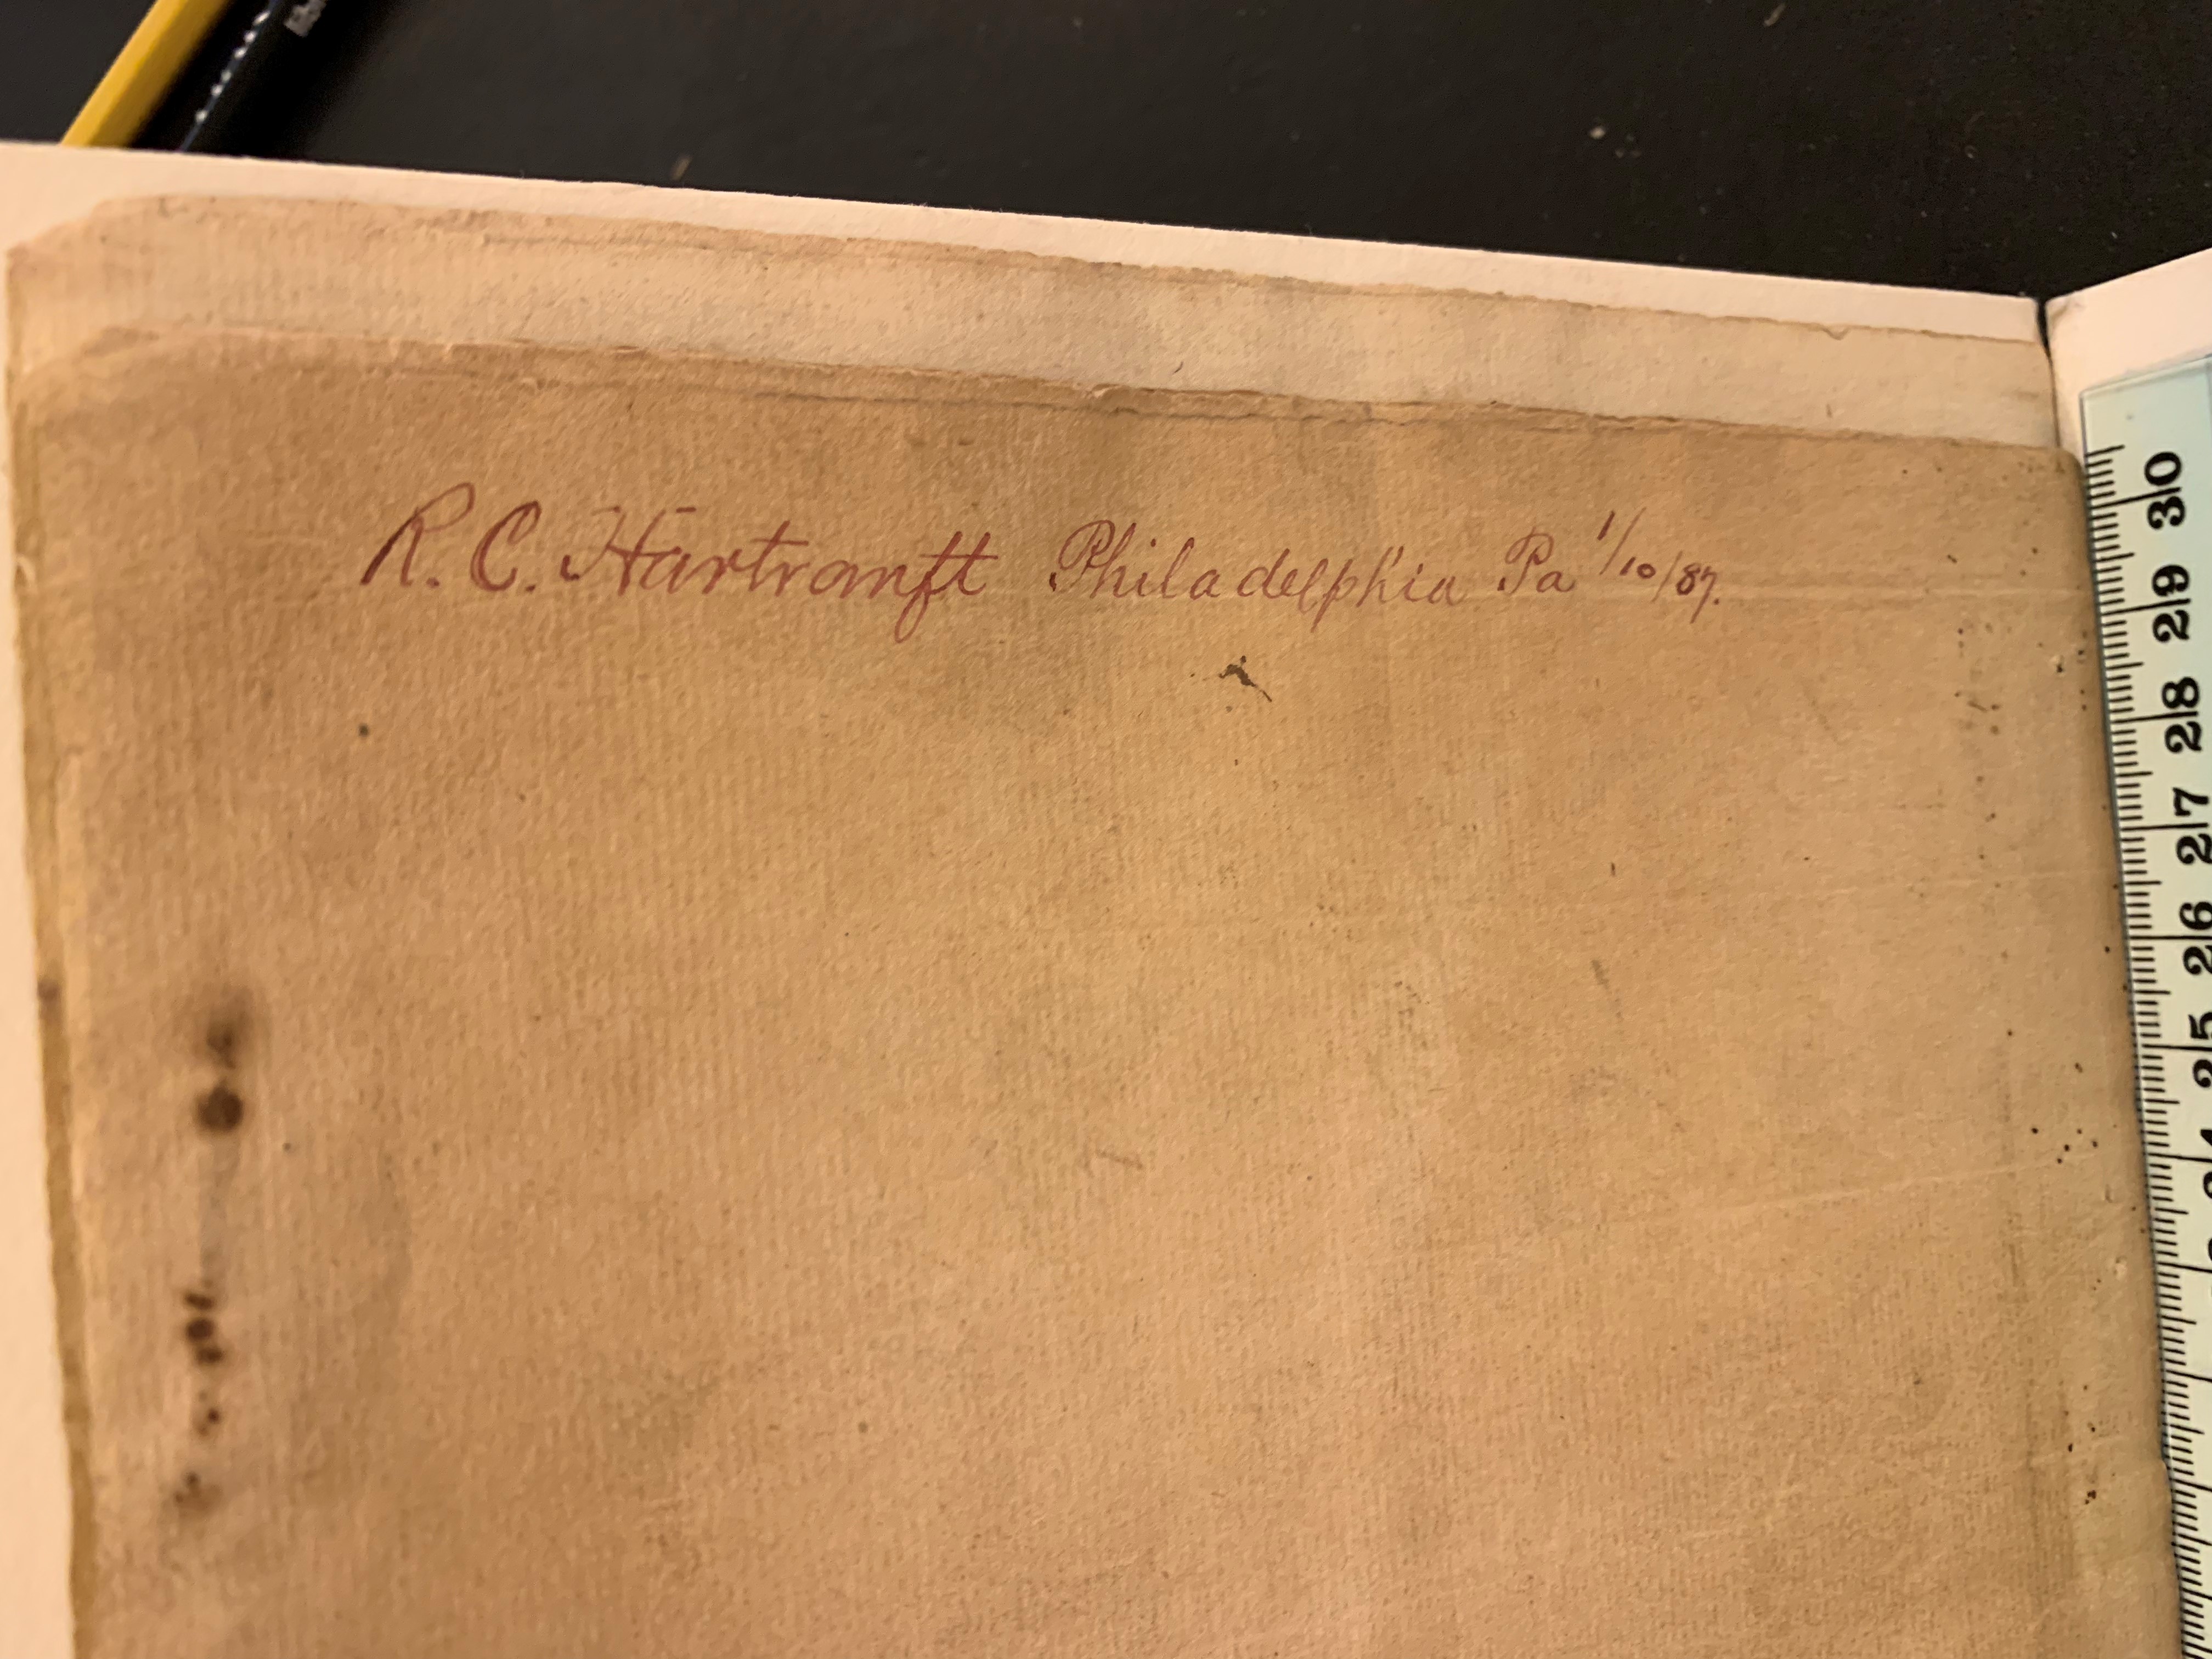 R. C. Hartranft Philadelphia Pa 1/10/87.
30
29
28
27
26
25